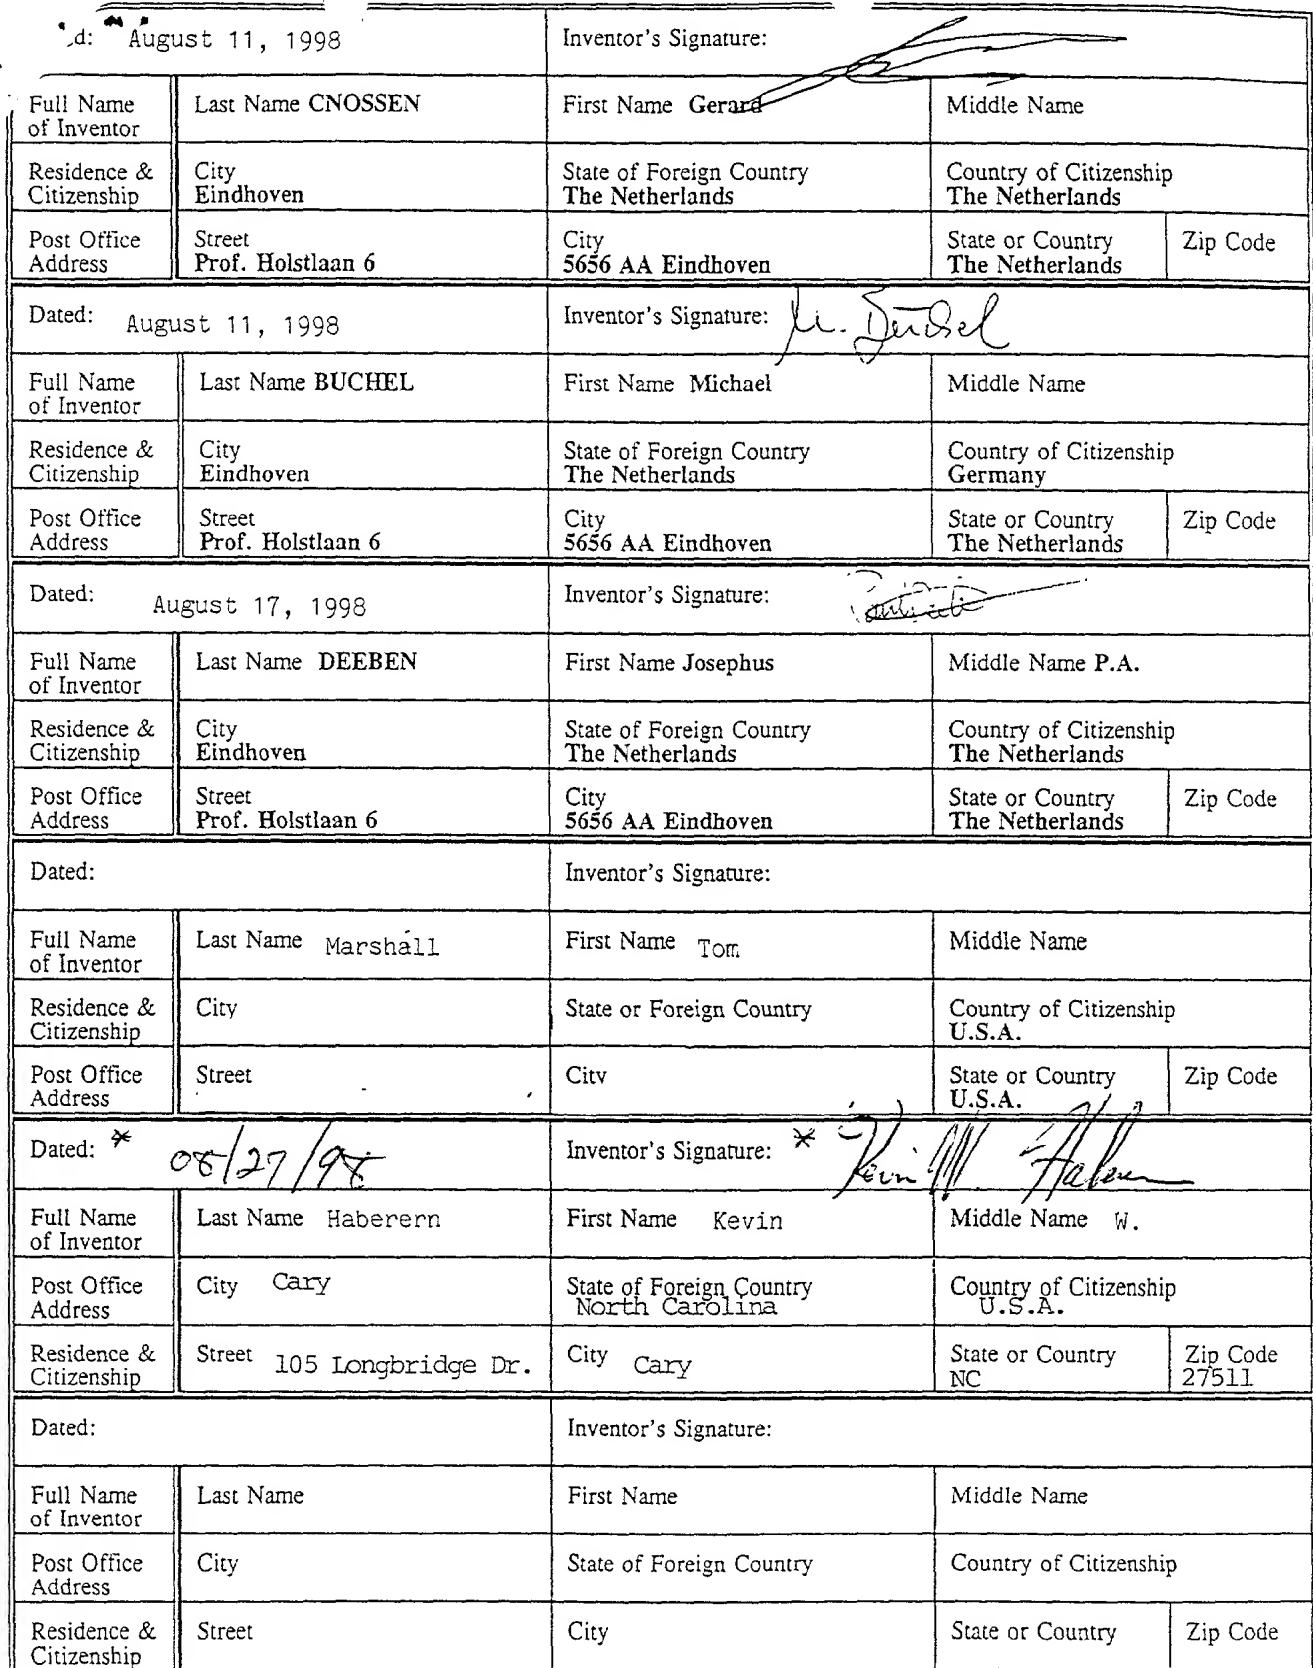 d: August 11, 1998 Inventor's Signature:
Full Name of Inventor Last Name CNOSSEN First Name Gerard Middle Name
Residence & Citizenship City Eindhoven State of Foreign Country The Netherlands Country of Citizenship The Netherlands
Post Office Address Street Prof. Holstlaan 6 City 5656 AA Eindhoven State or Country The Netherlands Zip Code
Dated: August 11, 1998 Inventor's Signature: M. Büchel
Full Name of Inventor Last Name BUCHEL First Name Michael Middle Name
Residence & Citizenship City Eindhoven State of Foreign Country The Netherlands Country of Citizenship Germany
Post Office Address Street Prof. Holstlaan 6 City 5656 AA Eindhoven State or Country The Netherlands Zip Code
Dated: August 17, 1998 Inventor's Signature:
Full Name of Inventor Last Name DEEBEN First Name Josephus Middle Name P.A.
Residence & Citizenship City Eindhoven State of Foreign Country The Netherlands Country of Citizenship The Netherlands
Post Office Address Street Prof. Holstlaan 6 City 5656 AA Eindhoven State or Country The Netherlands Zip Code
Dated: Inventor's Signature:
Full Name of Inventor Last Name Marshall First Name Tom Middle Name
Residence & Citizenship City State or Foreign Country Country of Citizenship U.S.A.
Post Office Address Street City State or Country U.S.A. Zip Code
Dated: * 08/27/98 Inventor's Signature: * Kevin W. Haberern
Full Name of Inventor Last Name Haberern First Name Kevin Middle Name W.
Post Office Address City Cary State of Foreign Country North Carolina Country of Citizenship U.S.A.
Residence & Citizenship Street 105 Longbridge Dr. City Cary State or Country NC Zip Code 27511
Dated: Inventor's Signature:
Full Name of Inventor Last Name First Name Middle Name
Post Office Address City State of Foreign Country Country of Citizenship
Residence & Citizenship Street City State or Country Zip Code